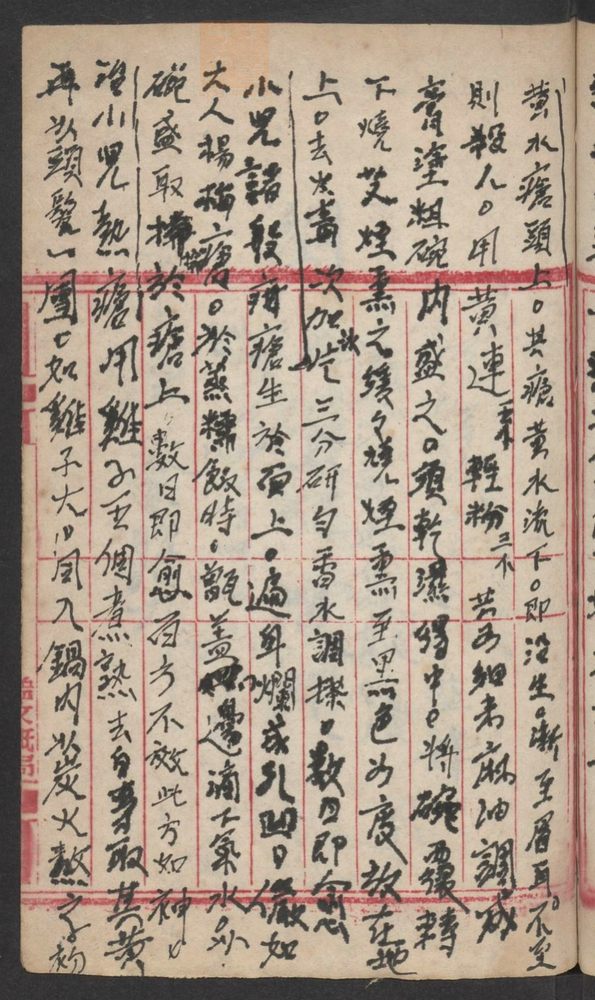 黃水瘡頭上。其瘡黃水流下。即沿生。漸至眉耳。不
則殺人。用黃連 輕粉三 共為細末麻油調成
膏塗粗碗內盛之。須乾濕得中。將碗覆轉
下燒艾烟熏之緩々燒烟熏至黑色為度放在地
上。去火毒次加 三分研勻香水調搽。數日即愈
小兒諸般 瘡生於面上。遍耳爛成孔凹。儼如
大人楊梅瘡。於蒸糯飯時。甑蓋四邊滴下氣水。以
碗盛取 於瘡上。數日即愈百方不效此方如神。
治小兒熱瘡用雞子五個煮熟去白專取其黃
再以頭髮一團。如雞子大。同入鍋內以炭火熬之